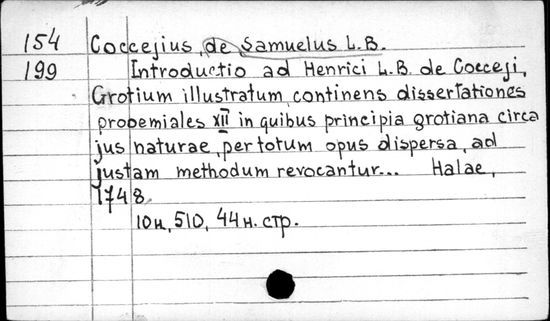 154 Coccejius, de, Samuelus L.B.
199 Introductio ad Henrici L.B. de Cocceji,
Grotium illustratum, continens dissertationes
prooemiales XII in quibus principia grotiana circa
jus naturae, per totum opus dispersa, ad
justam methodum revocantur... Halae,
1748.
10н, 510, 44н. стр.